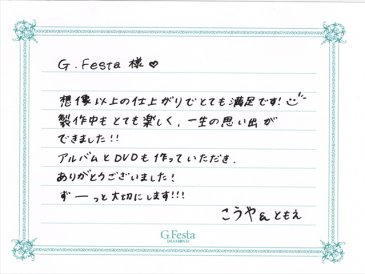 G.Festa 様♡
想像以上の仕上がりでとても満足です!
製作中もとても楽しく、一生の思い出が
できました!!
アルバムとDVDも作っていただき、
ありがとうございました!
ずーっと大切にします!!!
こうや&ともえ
G.Festa
DIAMOND